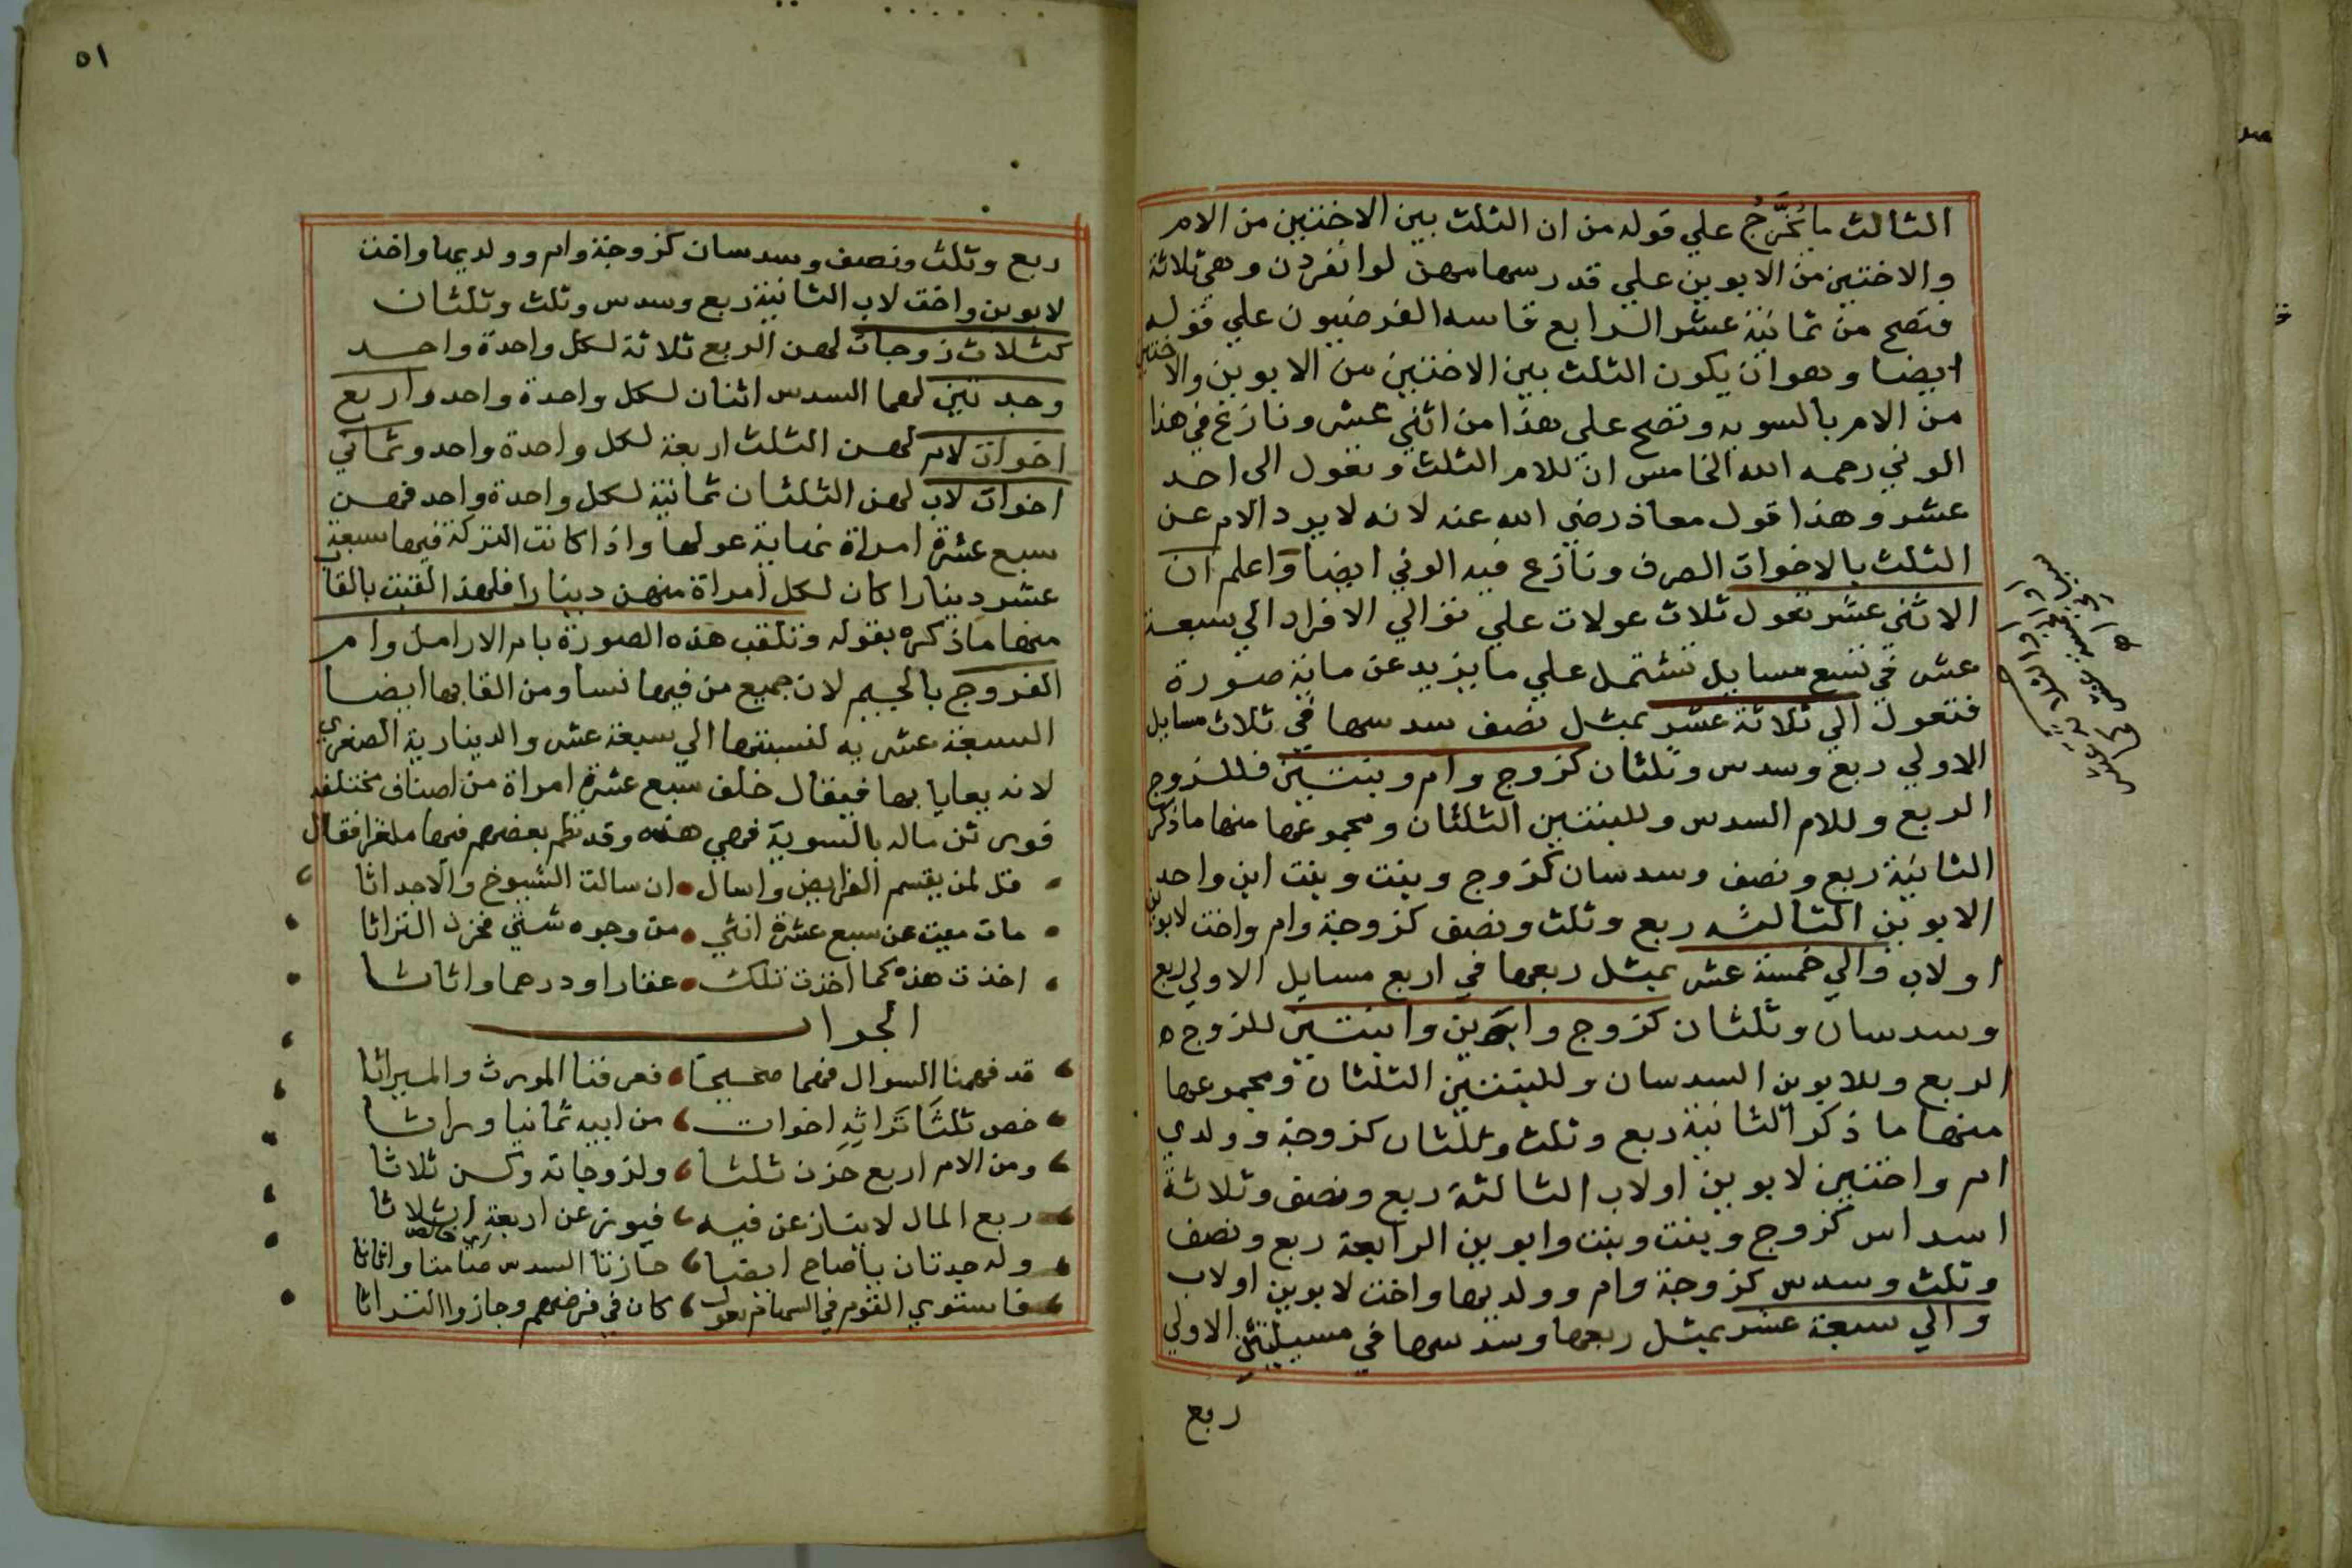 الثالث ما يُخَرَّجُ علي قوله من ان الثلث بين الاختين من الام
والاختين من الابوين علي قدر سهامهن لو انفردن وهي ثلاثة
فتصح من ثمانية عشر الرابع قاسه الفرضيون علي قوله
ايضا وهو ان يكون الثلث بين الاختين من الابوين والاختين
من الام بالسويه وتصح علي هذا من اثني عشر ونازع في هذا
الوني رحمه الله الخامس ان للام الثلث وتعول الى احد
عشر وهذا قول معاذ رضي الله عنه لانه لا يرد الام عن
الثلث بالاخوات الصرف ونازع فيه الوني ايضا واعلم ان
الاثني عشر تعول ثلاث عولات علي توالي الافراد الي سبعة
عشر في تسع مسايل تشتمل علي ما يزيد عن ماية صورة
فتعول الي ثلاثة عشر بمثل نصف سدسها في ثلاث مسايل
الاولي ربع وسدس وثلثان كزوج وام وبنتين فللزوج
الربع وللام السدس وللبنتين الثلثان ومجموعها منها ما ذكر
الثانية ربع ونصف وسدسان كزوج وبنت وبنت ابن واحد
الابوين الثالثه ربع وثلث ونصف كزوجة وام واخت لابوين
او لاب والي خمسة عشر بمثل ربعها في اربع مسايل الاولي ربع
وسدسان وثلثان كزوج وابوين وابنتين للزوج
الربع وللابوين السدسان وللبنتين الثلثان ومجموعها
منها ما ذكر الثانية ربع وثلث وثلثان كزوجة وولدي
ام واختين لابوين او لاب الثالثة ربع ونصف وثلاثة
اسداس كزوج وبنت وبنت وابوين الرابعة ربع ونصف
وثلث وسدس كزوجة وام وولديها واخت لابوين او لاب
والي سبعة عشر بمثل ربعها وسدسها في مسيلتين الاولي
ربع
٥١
ربع وثلث ونصف وسدسان كزوجة وام وولديها واخت
لابوين واخت لاب الثانية ربع وسدس وثلث وثلثان
كثلاث زوجات لهن الربع ثلاثة لكل واحدة واحد
وجدتين لهما السدس اثنان لكل واحدة واحد واربع
اخوات لام لهن الثلث اربعة لكل واحدة واحد وثماني
اخوات لاب لهن الثلثان ثمانية لكل واحدة واحد فهن
سبع عشرة امراة نهاية عولها واذا كانت التركة فيها سبعة
عشر دينارا كان لكل امراة منهن دينارا فلهذا لقبت بالقاب
منها ما ذكره بقوله وتلقب هذه الصورة بام الارامل وام
الفروج بالجيم لان جميع من فيها نسا ومن القابها ايضا
السبعة عشريه لنسبتها الي سبعة عشر والدينارية الصغري
لانه يعايا بها فيقال خلف سبع عشرة امراة من اصناف مختلفه
فورثن ماله بالسوية فهي هذه وقد نظم بعضهم فيها ملغزا فقال
قل لمن يقسم الفرايض واسال • ان سالت الشيوخ والاحداثا
مات ميت عن سبع عشرة انثي • من وجوه شتي فحزن التراثا
اخذت هذه كما اخذت تلك • عقارا ودرهما واثاثا
الجواب
قد فهمنا السوال فهما صحيحا • فعرفنا الموروث والميراثا
خص ثلثَا تَرَاثِهِ اخوات من ابيه ثمانيا وراثا
ومن الام اربع حزن ثلثا ولزوجاته وكن ثلاثا
ربع المال لا ينازعن فيه
وله جدتان ياصاح ايضا حازتا السدس
فاستوي القوم في السهام بعول كان في فرضهم وحازوا التراثا